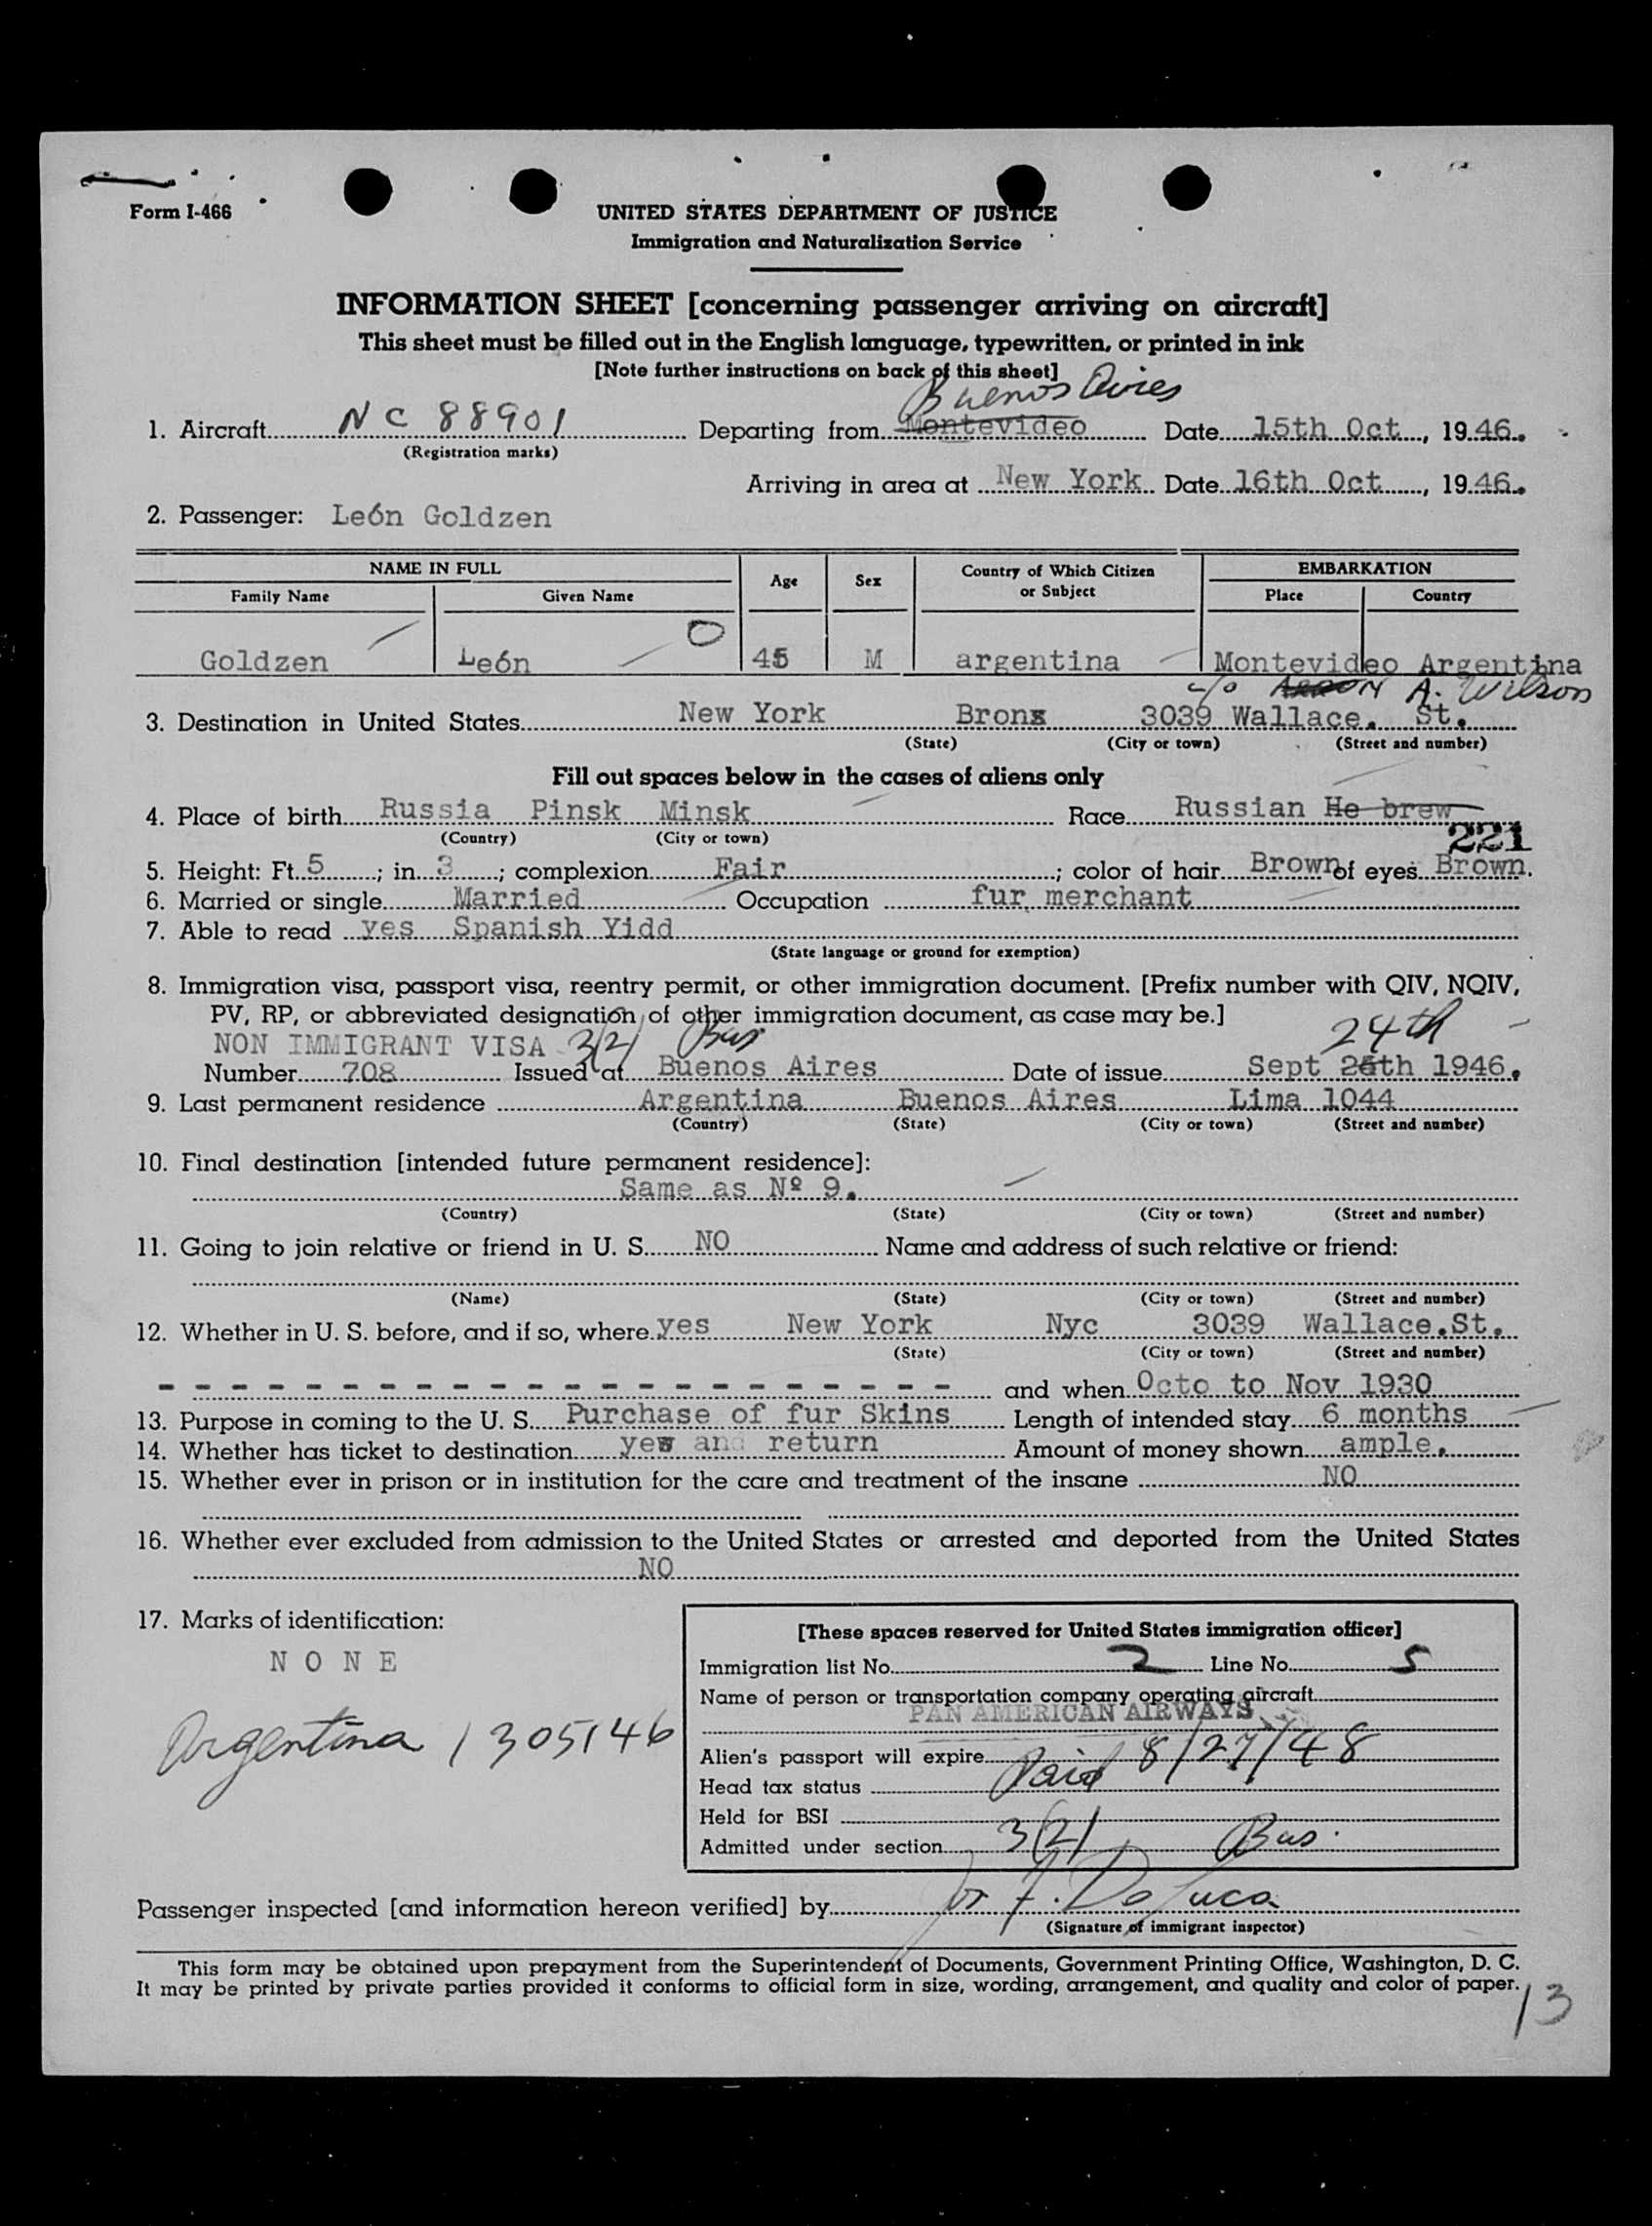 Form I-466
UNITED STATES DEPARTMENT OF JUSTICE
Immigration and Naturalization Service
INFORMATION SHEET [concerning passenger arriving on aircraft]
This sheet must be filled out in the English language, typewritten, or printed in ink
[Note further instructions on back of this sheet]
Buenos Aires
1. Aircraft NC 88901 Departing from Montevideo Date 15th Oct, 1946.
(Registration marks)
Arriving in area at New York Date 16th Oct, 1946.
2. Passenger: León Goldzen
NAME IN FULL Age Sex Country of Which Citizen or Subject EMBARKATION
Family Name Given Name Place Country
Goldzen León 45 M argentina Montevideo Argentina
c/o A. Wilson
3. Destination in United States New York Bronx 3039 Wallace. St.
(State) (City or town) (Street and number)
Fill out spaces below in the cases of aliens only
4. Place of birth Russia Pinsk Minsk Race Russian He brew
(Country) (City or town)
221
5. Height: Ft. 5; in. 3; complexion Fair; color of hair Brown of eyes Brown.
6. Married or single Married Occupation fur merchant
7. Able to read yes Spanish Yidd
(State language or ground for exemption)
8. Immigration visa, passport visa, reentry permit, or other immigration document. [Prefix number with QIV, NQIV,
PV, RP, or abbreviated designation of other immigration document, as case may be.]
NON IMMIGRANT VISA 3(2) Bus 24th
Number 708 Issued at Buenos Aires Date of issue Sept 25th 1946.
9. Last permanent residence Argentina Buenos Aires Lima 1044
(Country) (State) (City or town) (Street and number)
10. Final destination [intended future permanent residence]:
Same as Nº 9.
(Country) (State) (City or town) (Street and number)
11. Going to join relative or friend in U. S. NO Name and address of such relative or friend:
(Name) (State) (City or town) (Street and number)
12. Whether in U. S. before, and if so, where yes New York Nyc 3039 Wallace.St.
(State) (City or town) (Street and number)
and when Octo to Nov 1930
13. Purpose in coming to the U. S. Purchase of fur Skins Length of intended stay 6 months
14. Whether has ticket to destination yes and return Amount of money shown ample.
15. Whether ever in prison or in institution for the care and treatment of the insane NO
16. Whether ever excluded from admission to the United States or arrested and deported from the United States
NO
17. Marks of identification:
NONE
Argentina 1305146
[These spaces reserved for United States immigration officer]
Immigration list No. 2 Line No. 5
Name of person or transportation company operating aircraft
PAN AMERICAN AIRWAYS
Alien's passport will expire 8/27/48
Head tax status Paid
Held for BSI
Admitted under section 3(2) Bus.
Passenger inspected [and information hereon verified] by F. DeLuca
(Signature of immigrant inspector)
This form may be obtained upon prepayment from the Superintendent of Documents, Government Printing Office, Washington, D. C.
It may be printed by private parties provided it conforms to official form in size, wording, arrangement, and quality and color of paper.
13